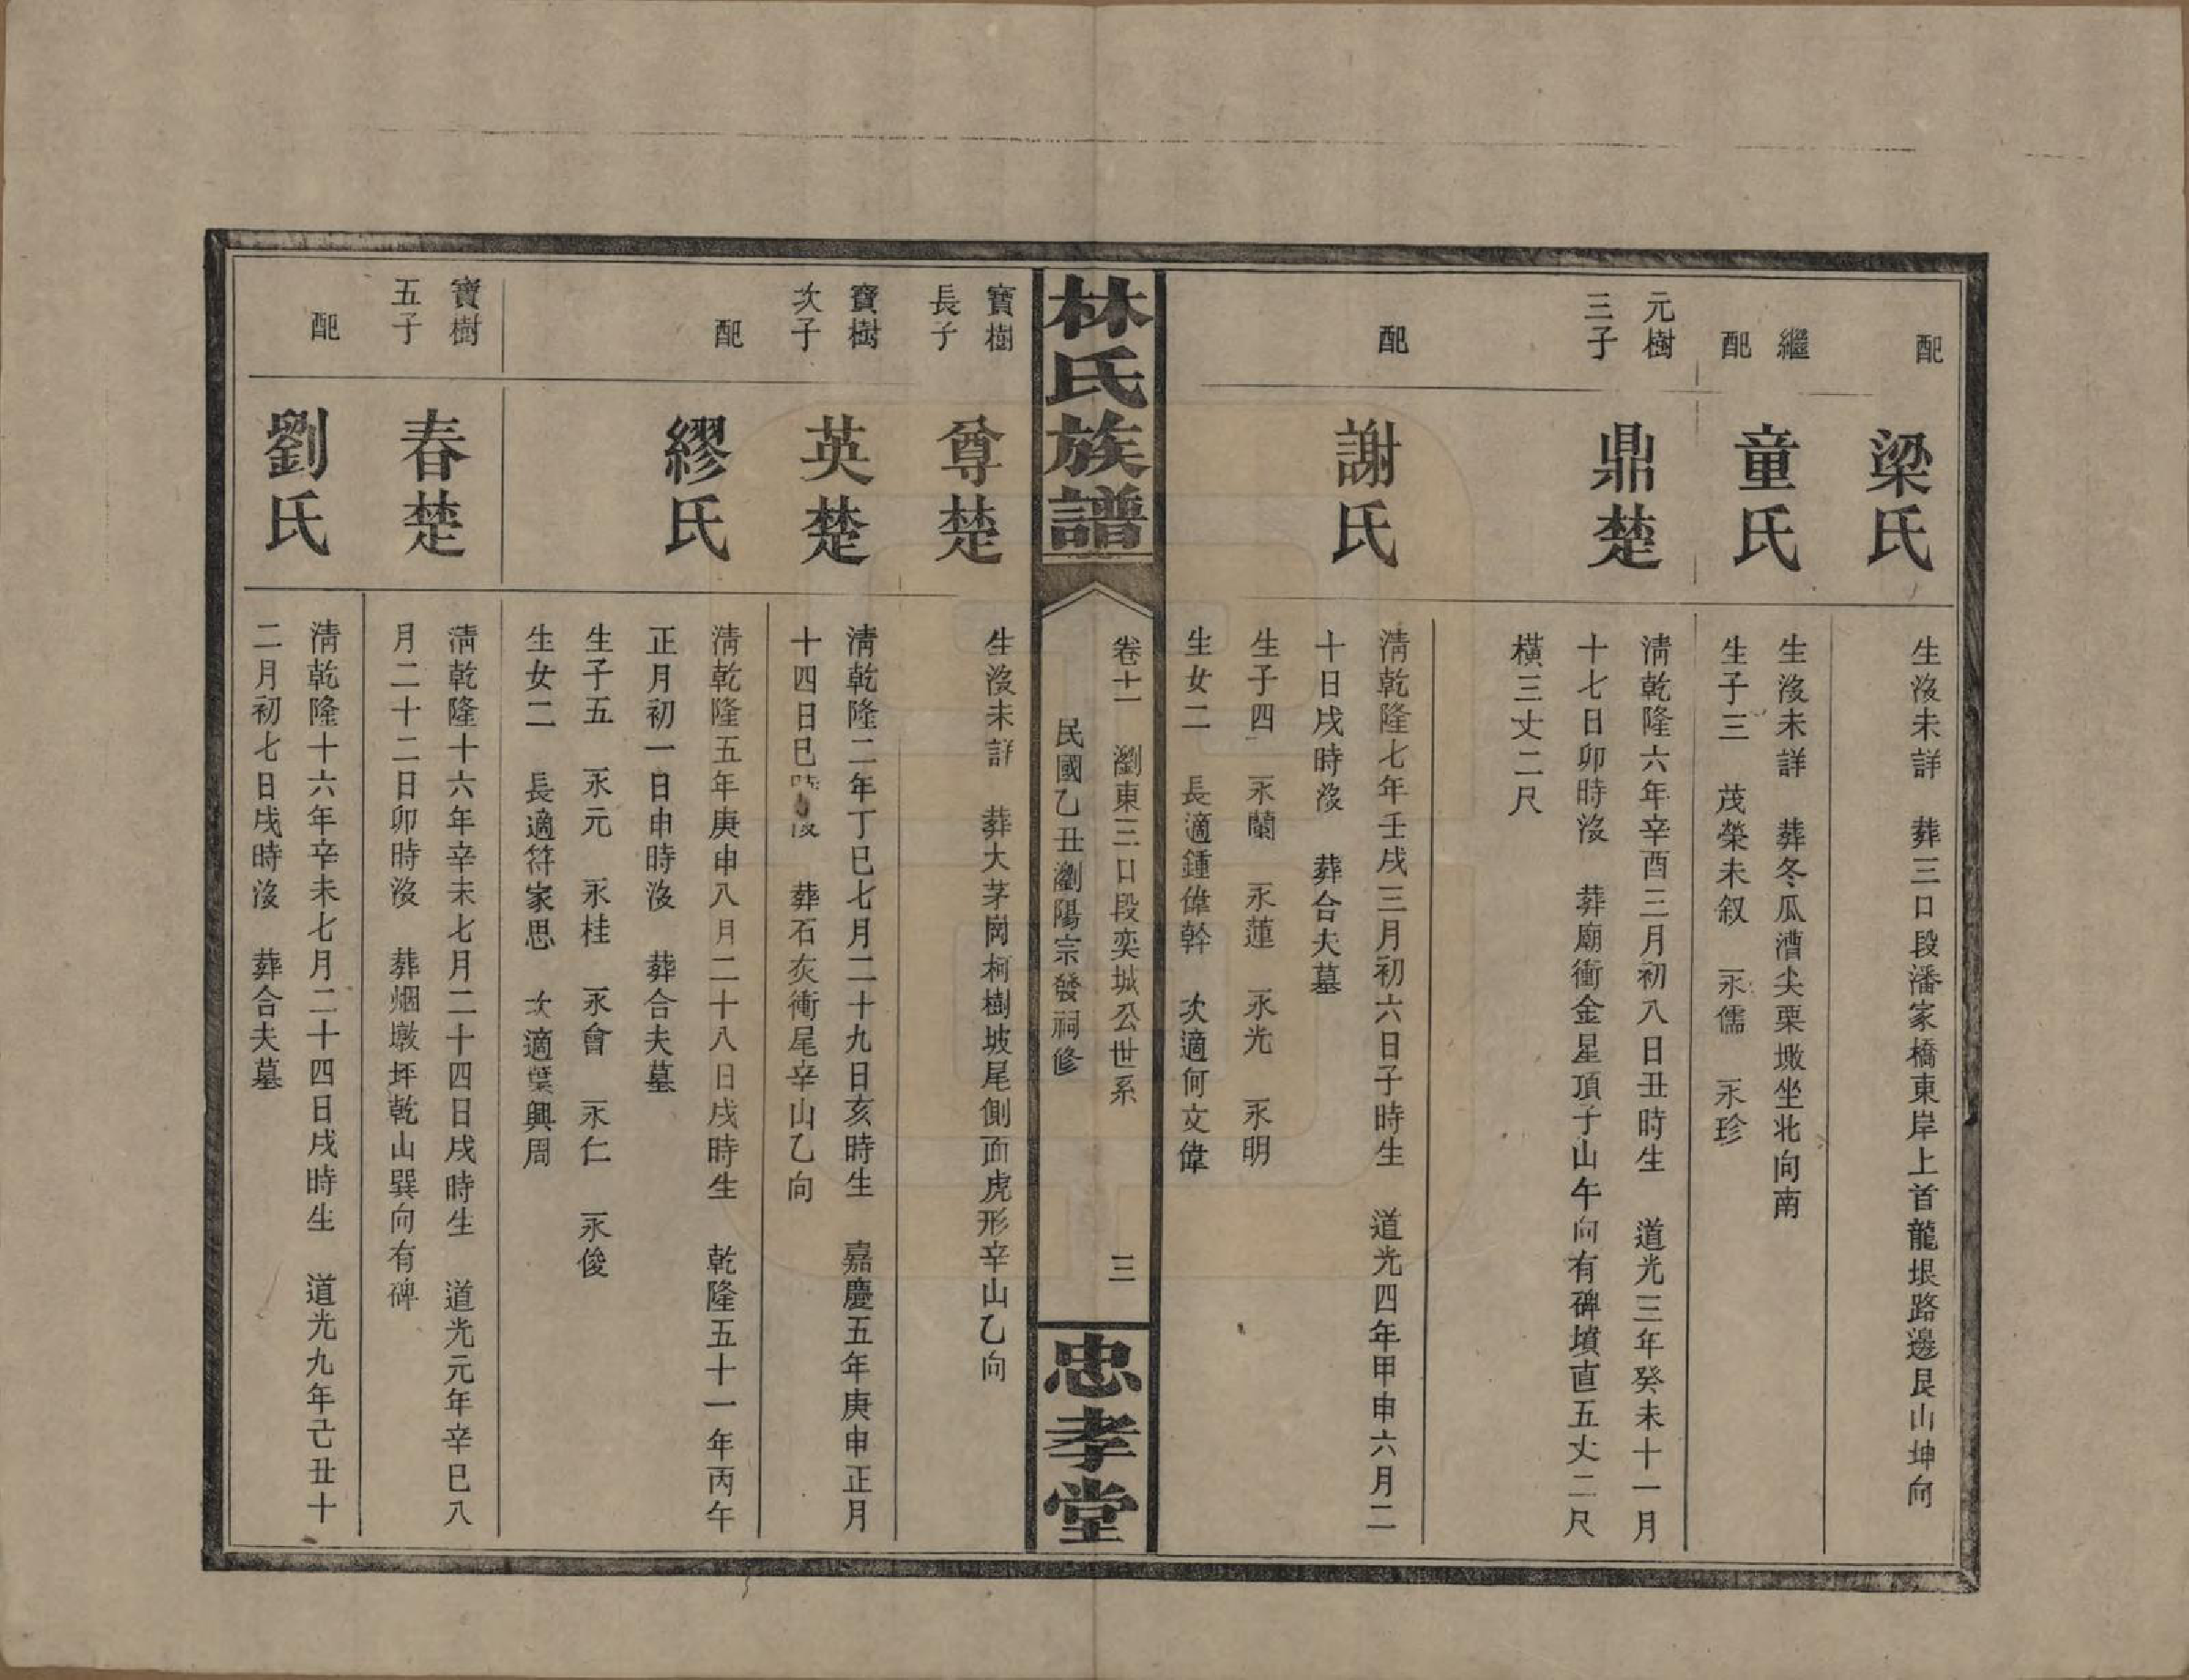 配
梁氏
生沒未詳　葬三口段潘家橋東岸上首龍垠路邊艮山坤向
繼
配
童氏
生沒未詳　葬冬瓜漕尖栗墩坐北向南
生子三　茂榮未叙　永儒　永珍
元樹
三子
鼎楚
清乾隆六年辛酉三月初八日丑時生　道光三年癸未十一月
十七日卯時沒　葬廟衝金星頂子山午向有碑墳直五丈二尺
橫三丈二尺
配
謝氏
清乾隆七年壬戌三月初六日子時生　道光四年甲申六月二
十日戌時沒　葬合夫墓
生子四　永蘭　永蓮　永光　永明
生女二　長適鍾偉幹　次適何文偉
林氏族譜
卷十一　瀏東三口段奕城公世系　三
民國乙丑瀏陽宗發祠修
忠孝堂
寶樹
長子
尊楚
生沒未詳　葬大茅崗柯樹坡尾側面虎形辛山乙向
寶樹
次子
英楚
清乾隆二年丁巳七月二十九日亥時生　嘉慶五年庚申正月
十四日巳時沒　葬石灰衝尾辛山乙向
配
繆氏
清乾隆五年庚申八月二十八日戌時生　乾隆五十一年丙午
正月初一日申時沒　葬合夫墓
生子五　永元　永桂　永會　永仁　永俊
生女二　長適符家思　次適葉興周
寶樹
五子
春楚
清乾隆十六年辛未七月二十四日戌時生　道光元年辛巳八
月二十二日卯時沒　葬烟墩坪乾山巽向有碑
配
劉氏
清乾隆十六年辛未七月二十四日戌時生　道光九年己丑十
二月初七日戌時沒　葬合夫墓